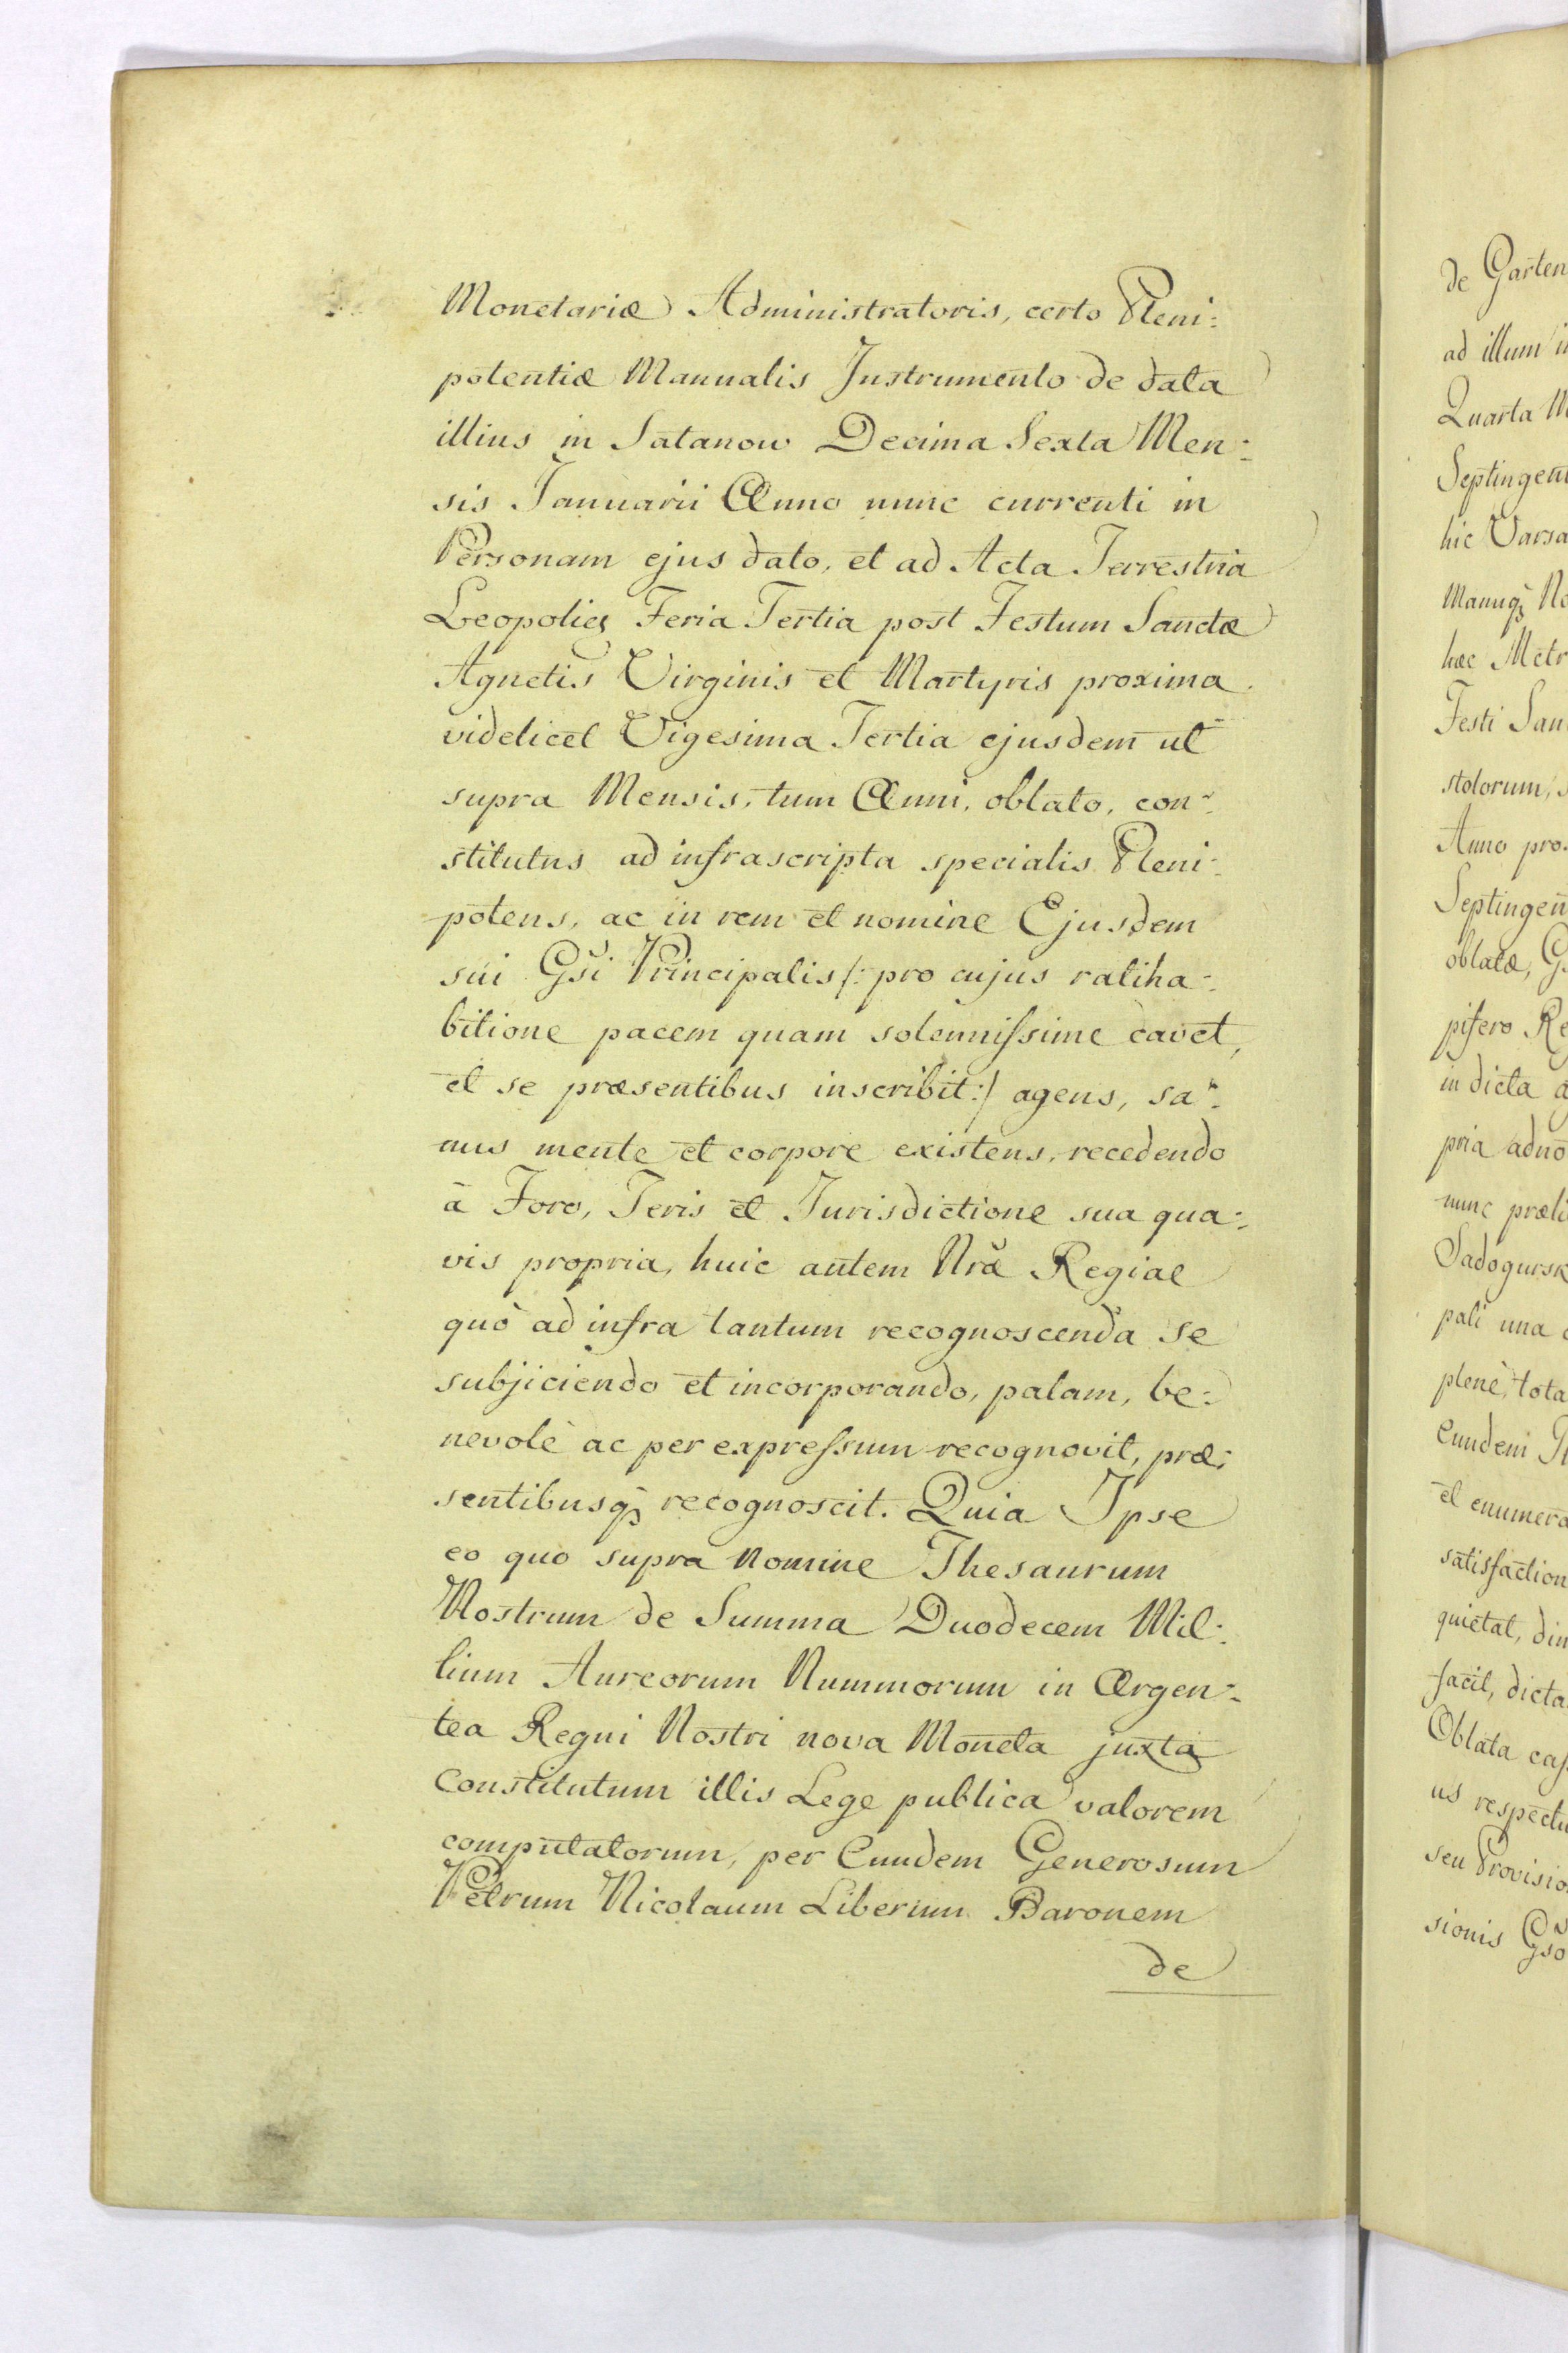 Monetariæ Administratoris, certo Pleni:
potentiæ Manualis Instrumento de data
illius in Satanow Decima Sexta Men:
sis Januarii Anno nunc currenti in
Personam ejus dato, et ad Acta Terrestria
Leopoliẽs Feria Tertia post Festum Sanctæ
Agnetis Virginis et Martyris proxima
videlicet Vigesima Tertia ejusdem ut
supra Mensis, tum Anni, oblato, con:
stitutus ad infrascripta specialis Pleni:
potens, ac in rem et nomine Ejusdem
sui Gsi Principalis /: pro cujus ratiha:
bitione pacem quam solennissime cavet,
et se præsentibus inscribit :/ agens, sa:
nus mente et corpore existens, recedendo
à Foro, Teris et Jurisdictione sua qua:
vis propria, huic autem Nræ Regiae
quò ad infra tantum recognoscenda se
subjiciendo et incorporando, palam, be:
nevolè ac per expressum recognovit, præ:
sentibusq; recognoscit. Quia Ipse
eo quo supra Nomine Thesaurum
Nostrum de Summa Duodecem Mil:
lium Aureorum Nummorum in Argen:
tea Regni Nostri nova Moneta juxta
Constitutum illis Lege publica valorem
computatorum, per Eundem Generosum
Petrum Nicolaum Liberum Baronem
de
de Garten
ad illum
Quarta
Septingen
hic Varsa
Manuq;
hæc Metr
Festi San
stolorum,
Anno pro
Septingen
oblatæ,
pifero Re
in dicta
pria adno
nunc præli
Sadogursk
pali una
plenè, tota
Eundem
et enumera
satisfaction
quietat, dim
facit, dicta
Oblata cas
us respectu
seu Provisio
sionis Gso